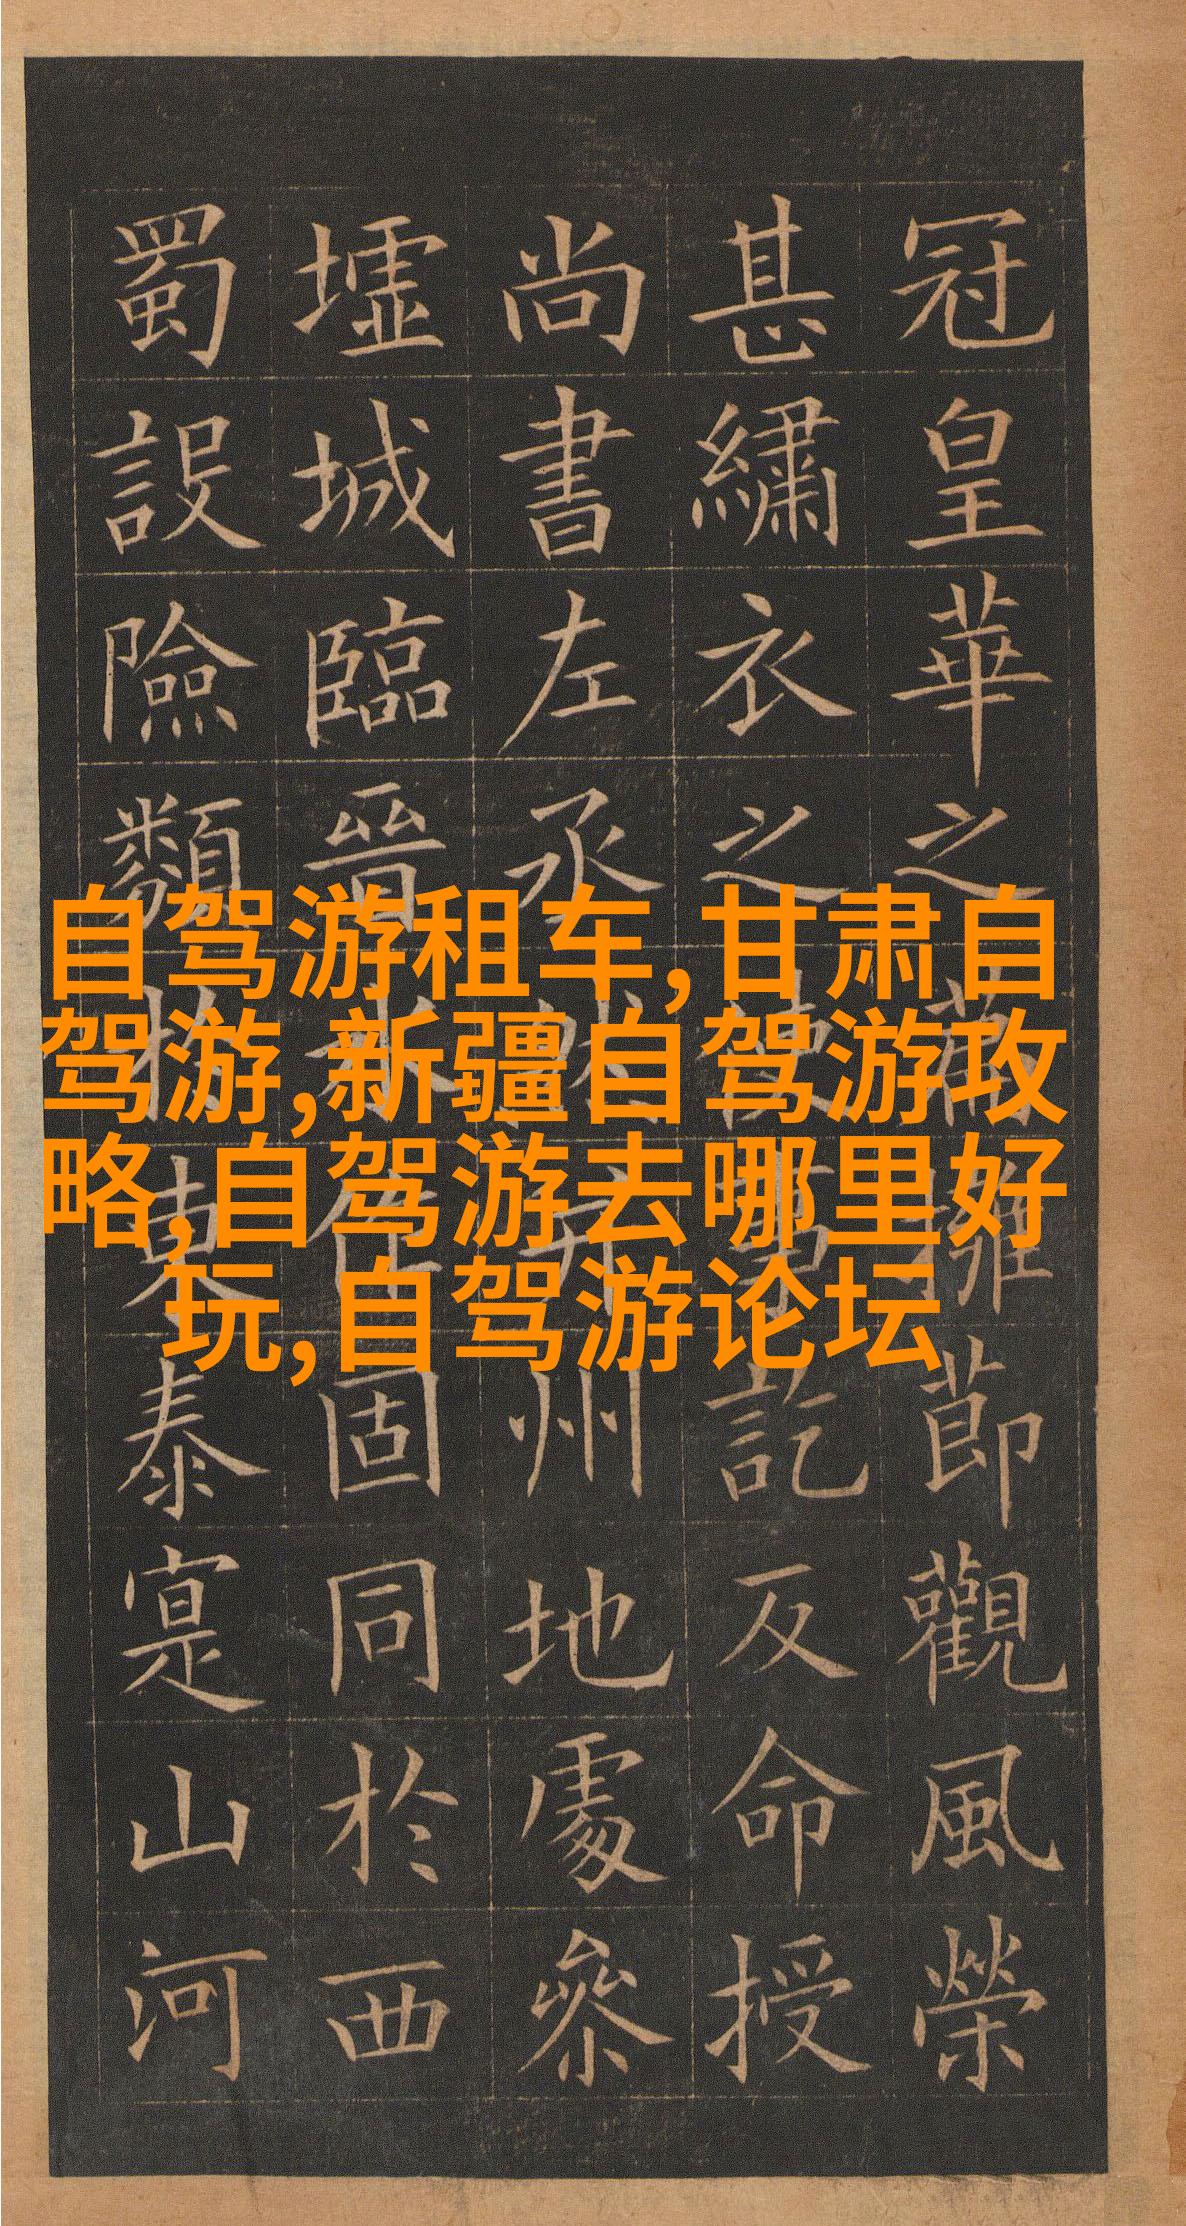 冠皇華之擁節觀風榮
甚繡衣之使事訖反命授
尚書左丞并州地處參
墟城臨晉水作固同於西
蜀設險類於東泰寔山河
自驾游租车,甘肃自
驾游,新疆自驾游攻
略,自驾游去哪里好
玩,自驾游论坛